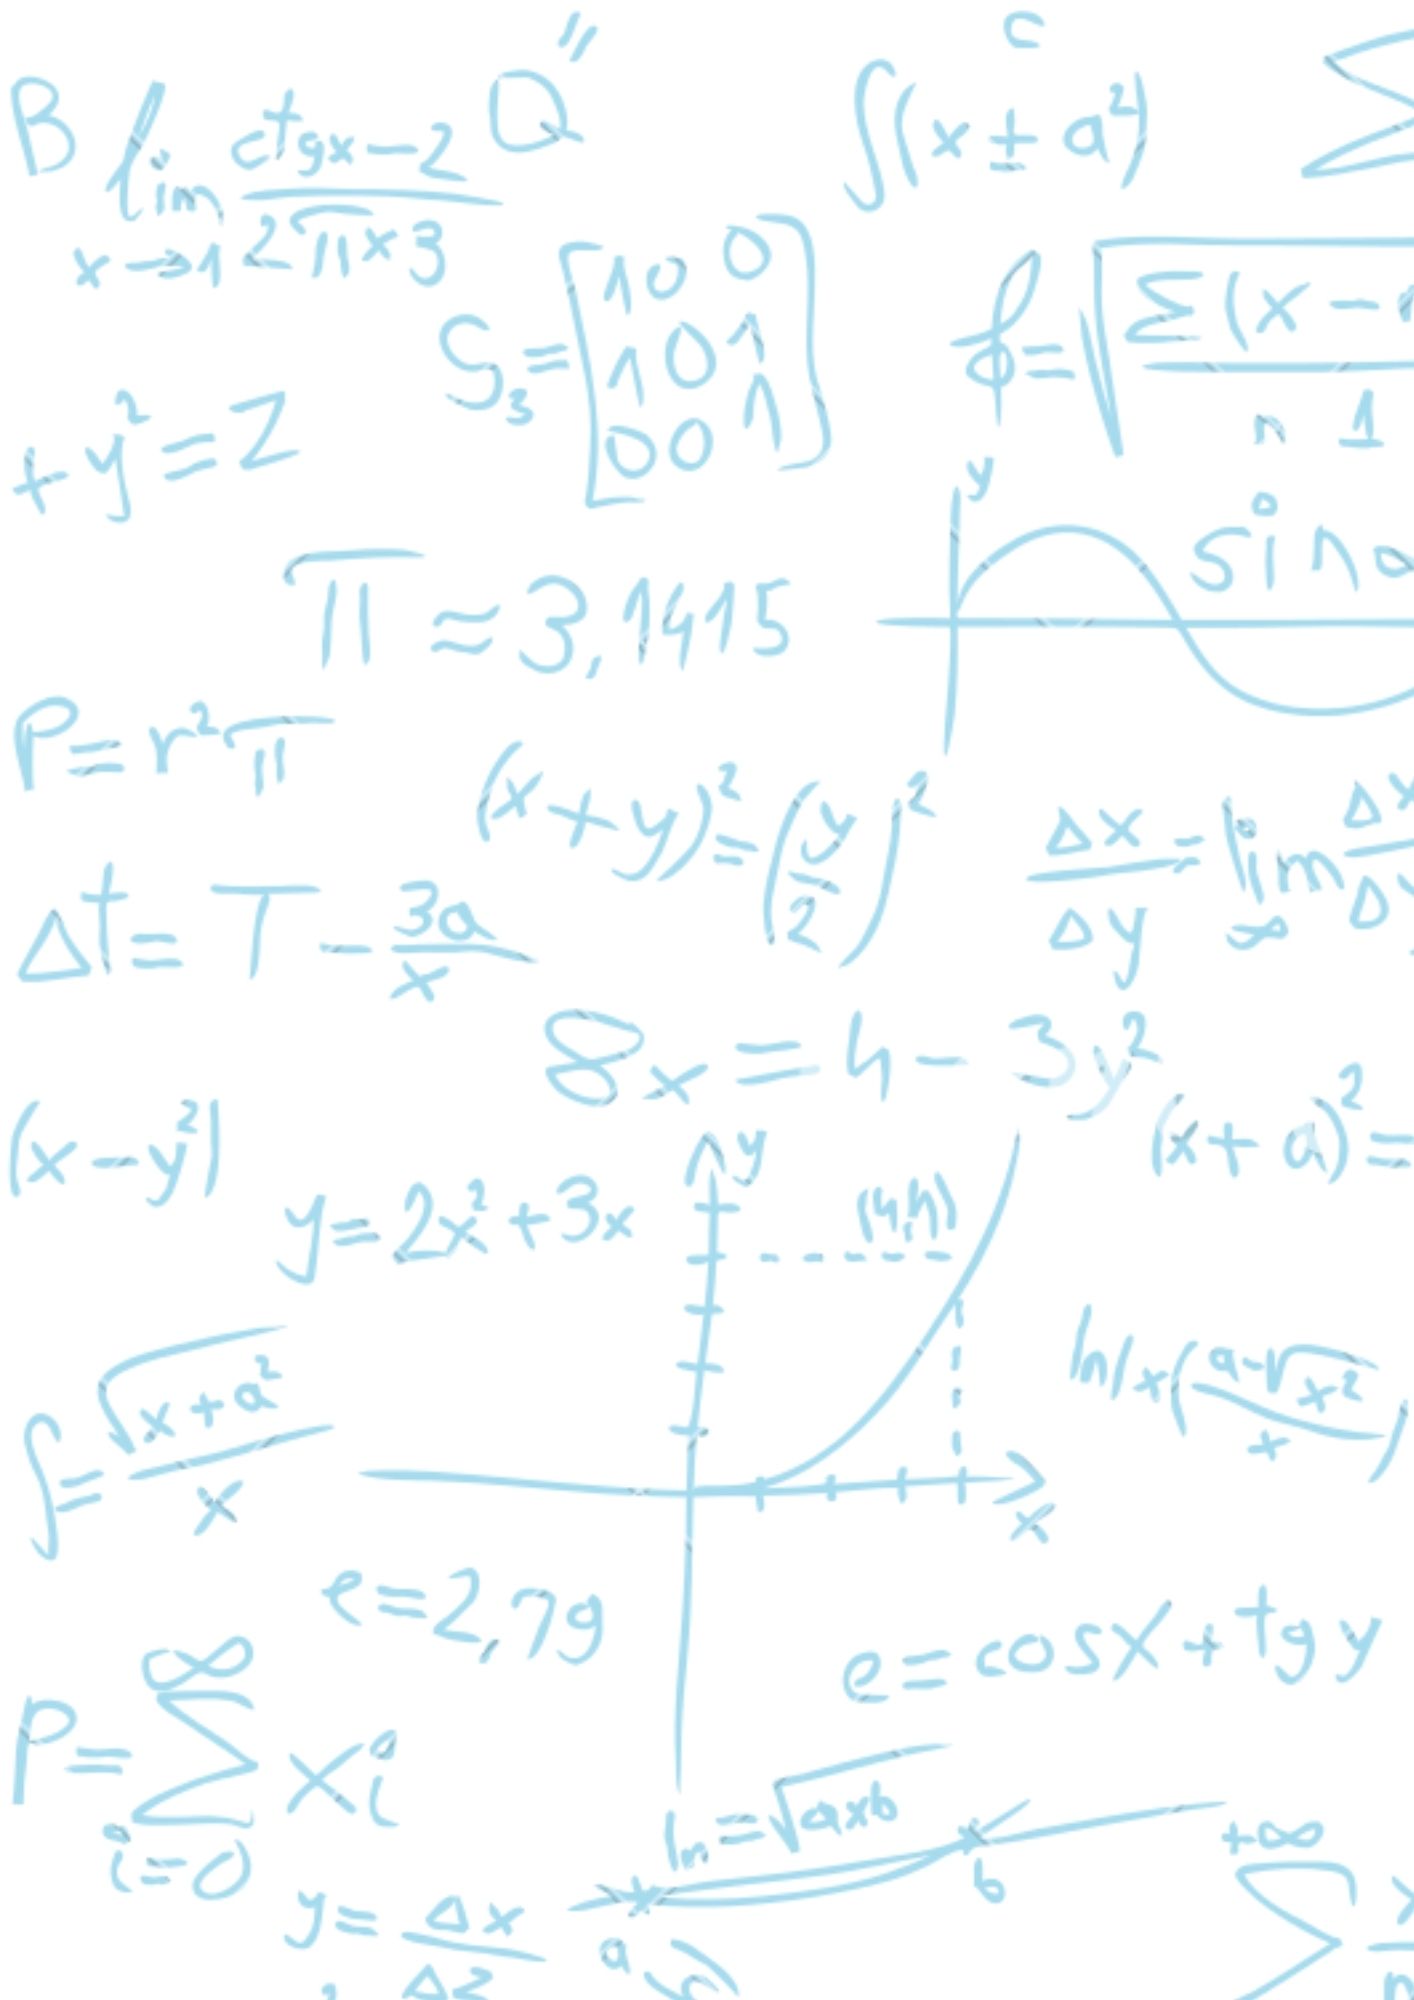 B lim x→1 (ctgx−2)/(2π×3) Q"
∫(x ± a²) c
Σ
S₃ = [1 0 0
1 0 1
0 0 1]
ϕ = √(Σ(x −
n 1
+ y² = Z
y
sin
π ≈ 3,1415
P = r²π
(x+y)² = (y/2)²
Δx/Δy = lim ∞ Δx/Δy
Δt = T − 3a/x
8x = 4 − 3y²
(x − y²)
(x + a)² =
y
y = 2x² + 3x
(4,4)
∫ = √(x + a²)/x
ln/x((a−√x²)/x)
x
e = 2,7g
e = cosx + tgy
P = ∞ Σ i=0 xi
ln = √axb
b
+∞
Σ x/n
y = Δx/Δz
a